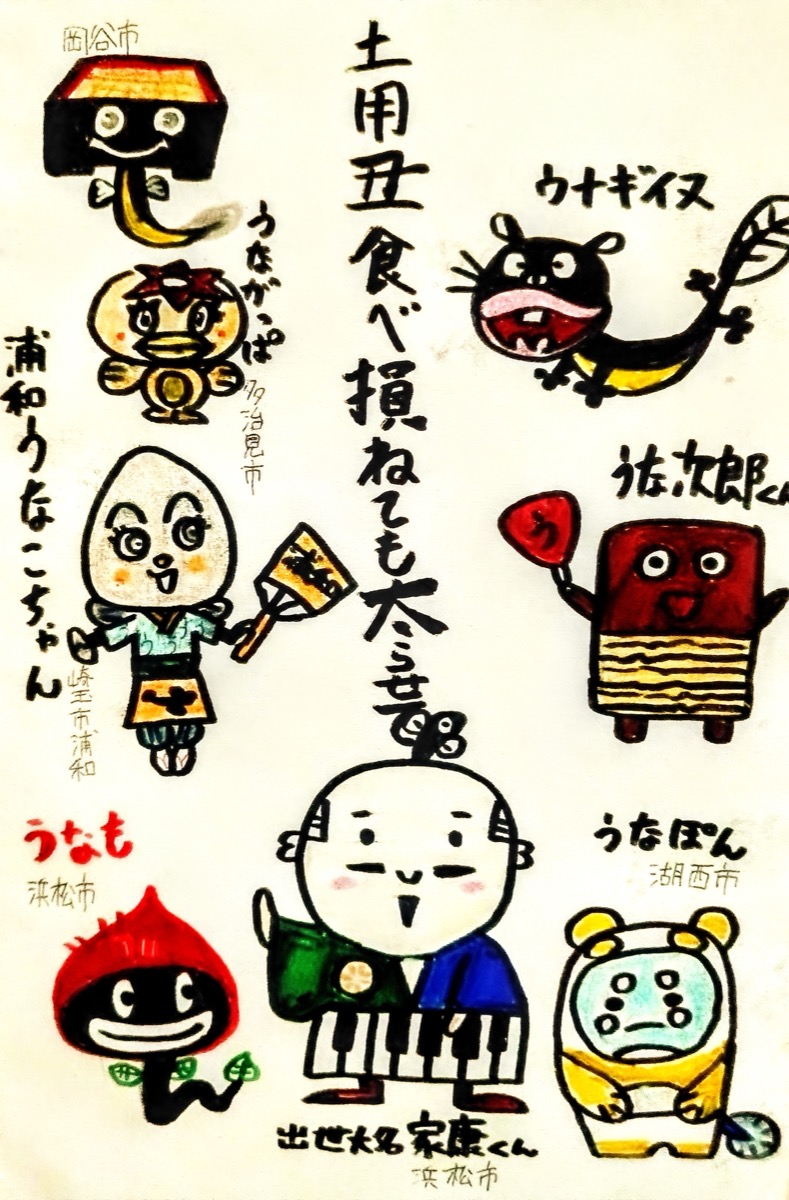 土用丑食べ損ねても太らせ
岡谷市
うながっぱ
多治見市
浦和うなこちゃん
崎玉市浦和
うなも
浜松市
ウナギイヌ
うな次郎くん
う
うなぽん
湖西市
出世大名家康くん
浜松市